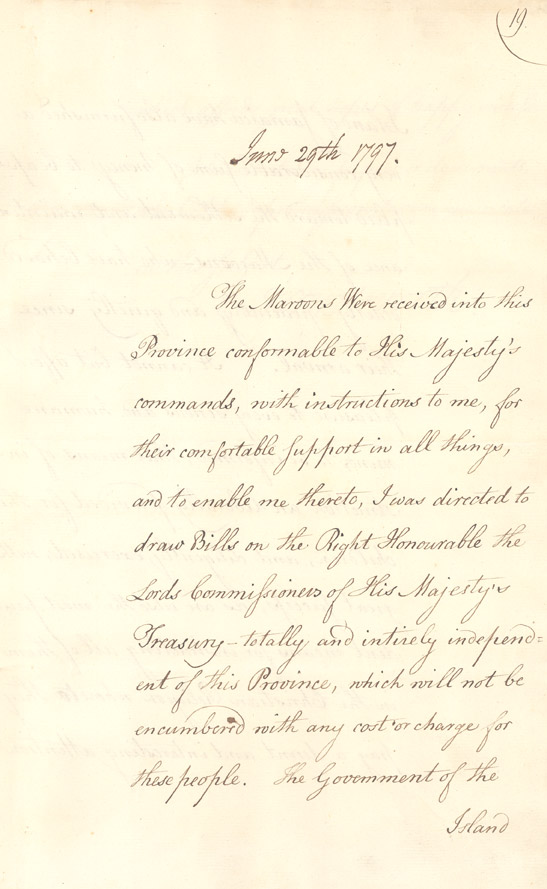 19.
June 29th 1797.
The Maroons Were received into this
Province conformable to His Majesty's
commands, with instructions to me, for
their comfortable support in all things,
and to enable me thereto, I was directed to
draw Bills on the Right Honourable the
Lords Commissioners of His Majesty's
Treasury – totally and intirely independ=
ent of this Province, which will not be
encumbered with any cost or charge for
these people. The Government of the
Island